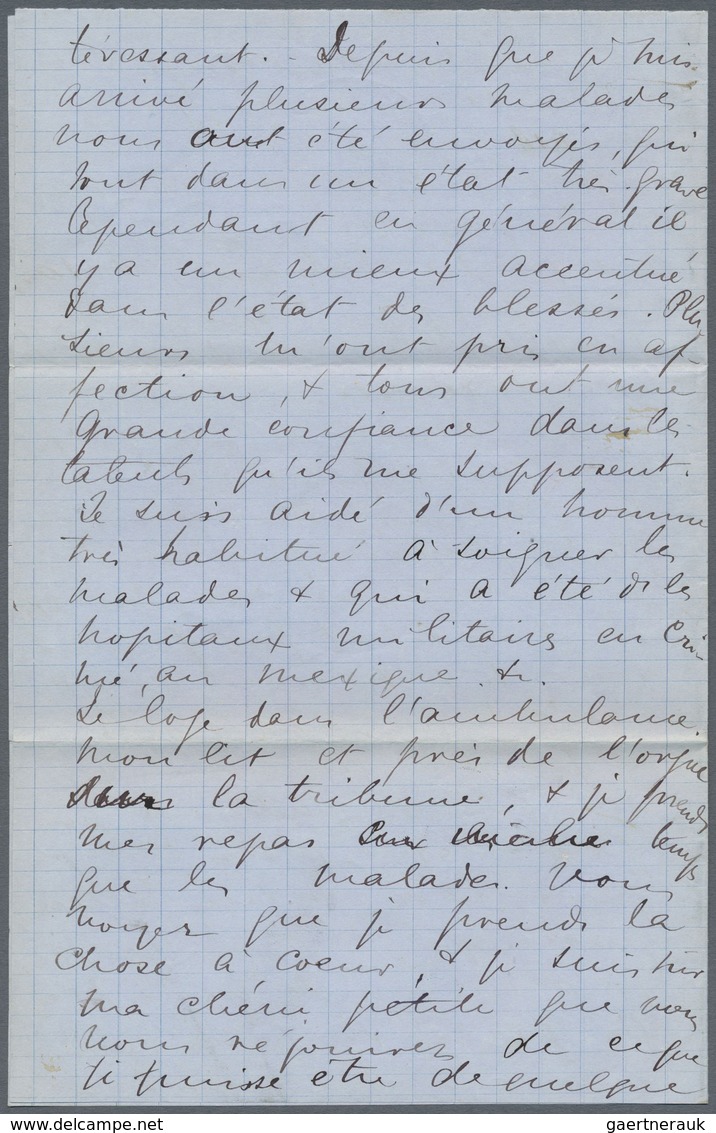 téressant. - Depuis que je suis
arrivé plusieurs malades
nous ont été envoyés, qui
sont dans un état très grave
Cependant en général il
y a un mieux accentué
dans l'état des blessés. Plu
sieurs m'ont pris en af-
fection, & tous ont une
grande confiance dans les
talents qu'ils me supposent.
Je suis aidé d'un homme
très habitué à soigner les
malades & qui a été ds les
hopitaux militaires en Cri-
mé, au Mexique &.
Je loge dans l'ambulance.
mon lit et près de l'orgue
dans la tribune, & je prends
mes repas temps
que les malades. Vous
voyez que je prends la
chose à coeur, & je suis sûr
ma chérie petite que vous
vous réjouirez de ce que
je puisse être de quelque
gaertnerauk